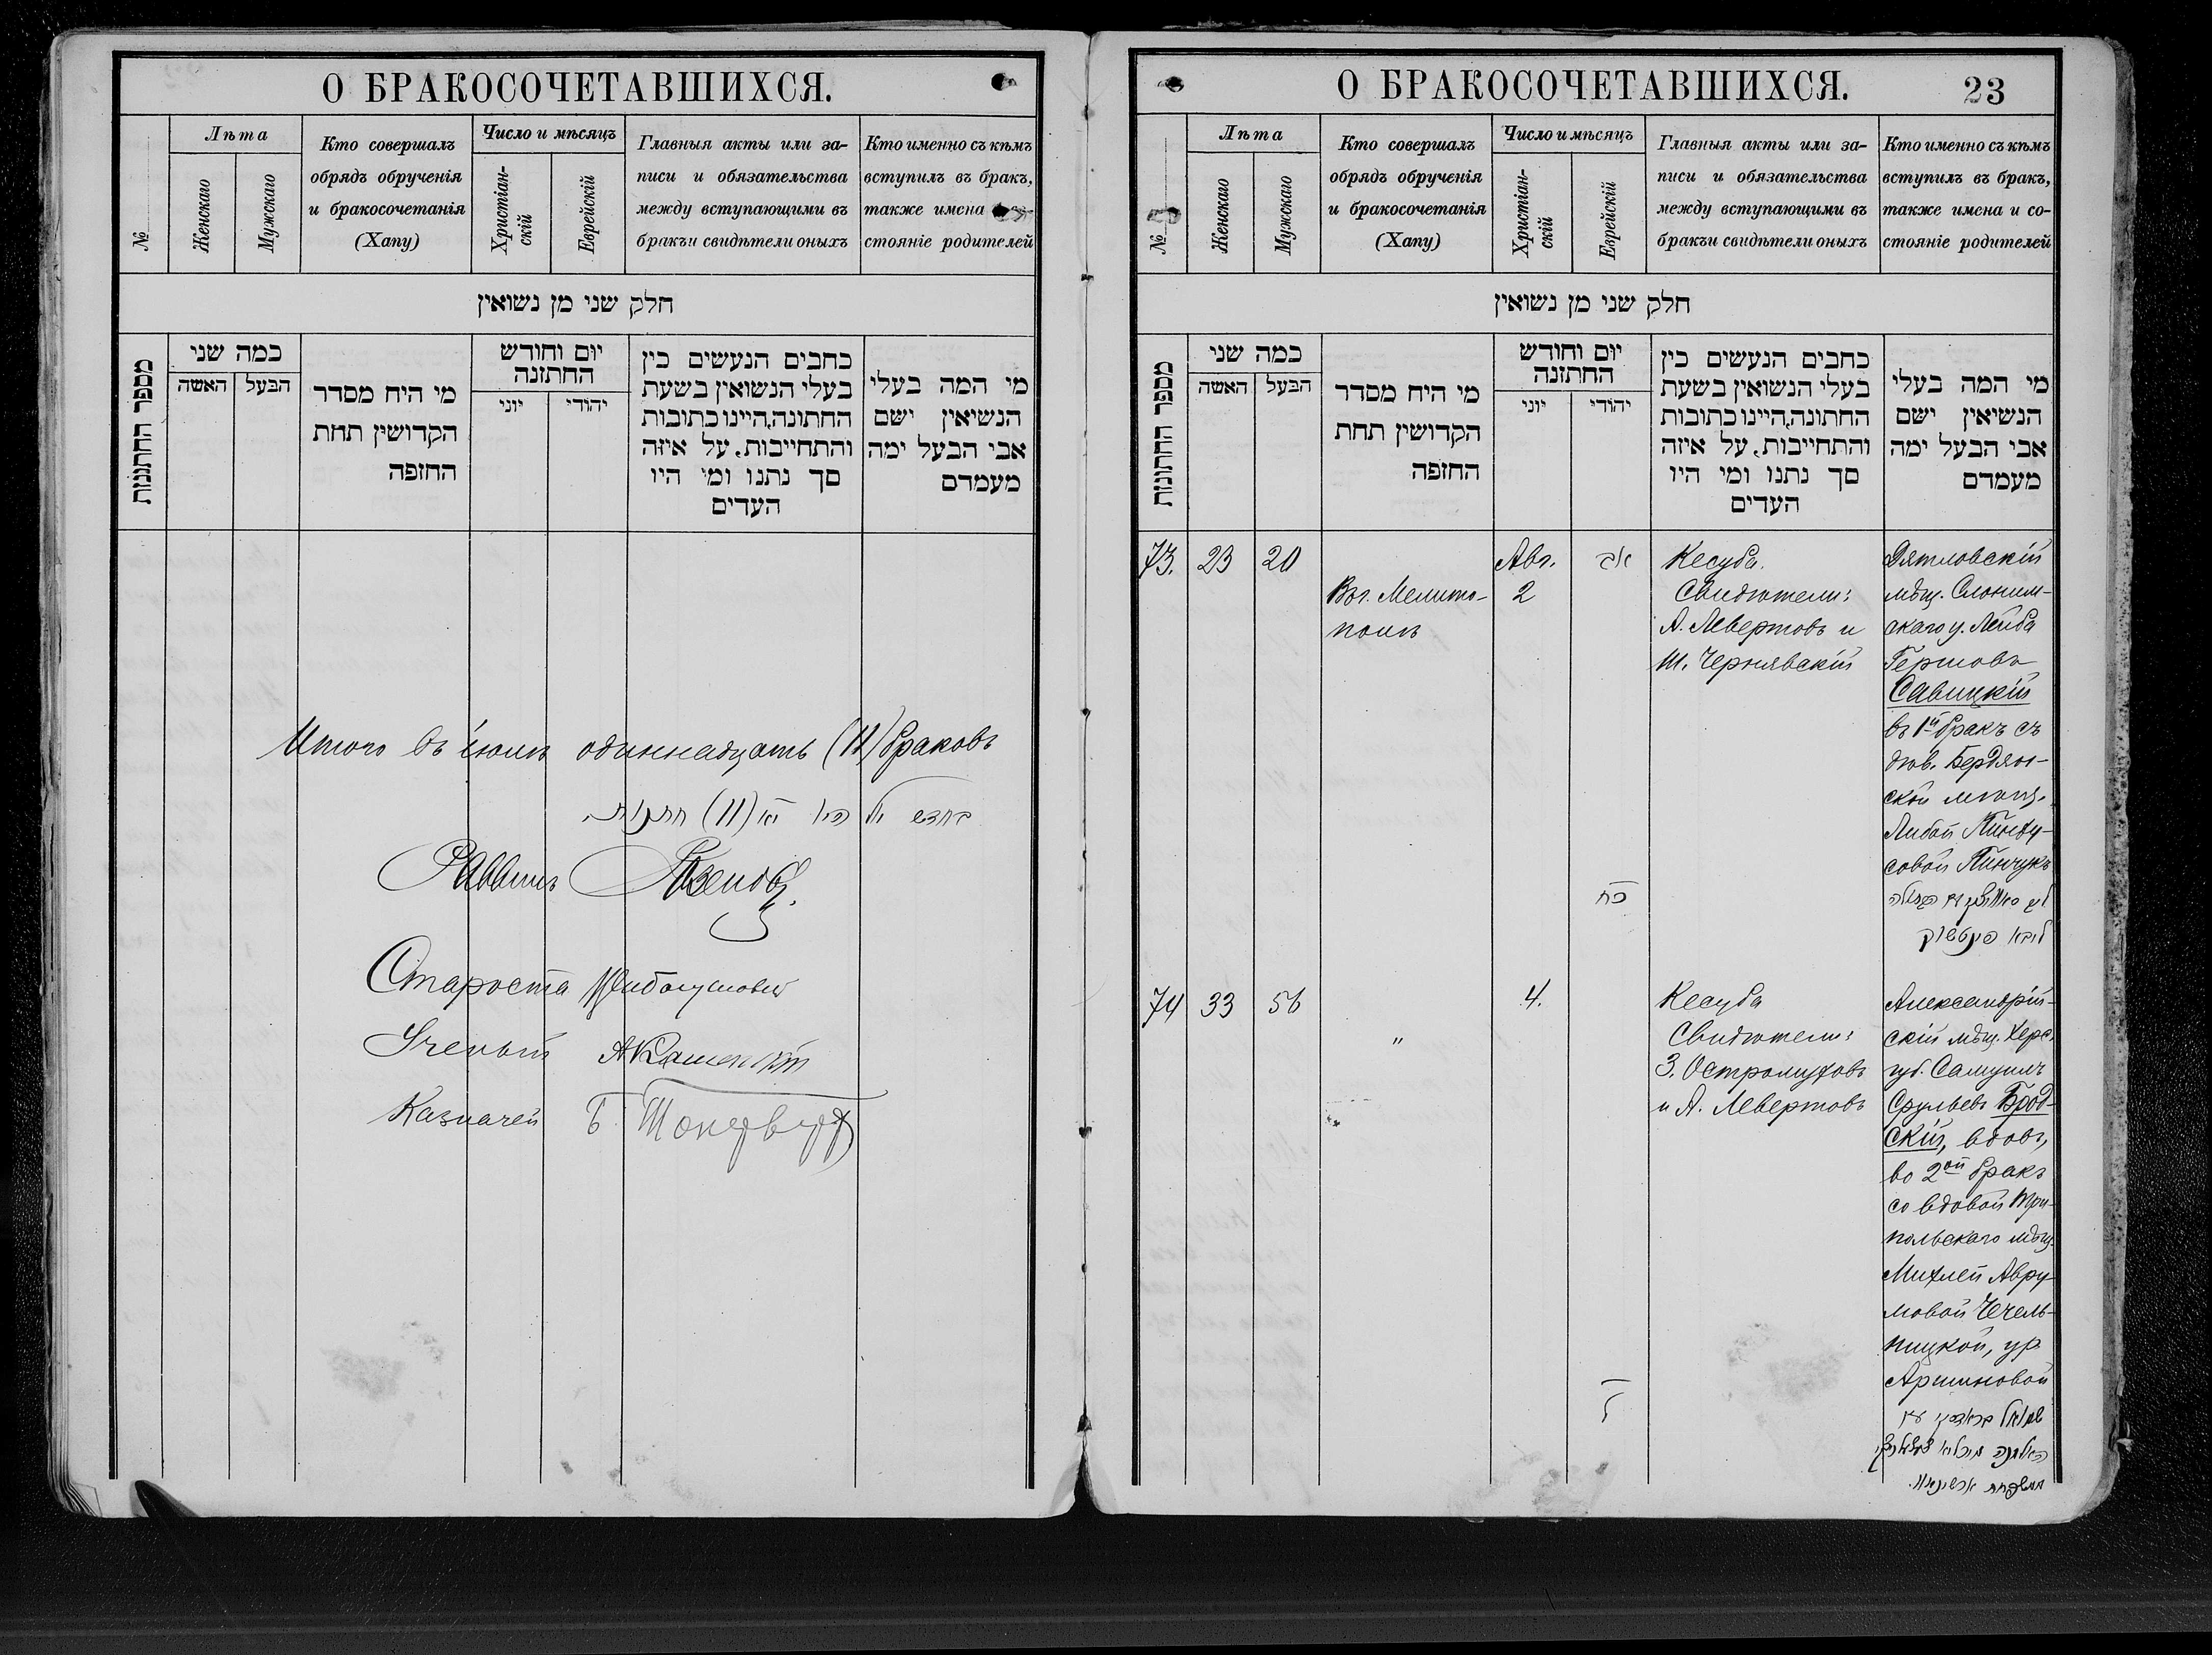 О БРАКОСОЧЕТАВШИХСЯ.
№
Лѣта
Женскаго
Мужскаго
Кто совершалъ
обрядъ обрученія
и бракосочетанія
(Хапу)
Число и мѣсяцъ
Христіан-
скій
Еврейскій
Главныя акты или за-
писи и обязательства
между вступающими въ
бракъ и свидѣтели оныхъ
Кто именно съ кѣмъ
вступилъ въ бракъ,
также имена
стояніе родителей
חלק שני מן נשואין
מספר החתונות
כמה שני
האשה
הבעל
מי היח מסדר
הקדושין תחת
החופה
יום וחודש
החתונה
יוני
יהודי
כחבים הנעשים כין
בעלי הנשואין בשעת
החתונה, היינו כתובות
והתחייבות, על איזה
סך נתנו ומי היו
העדים
מי המה בעלי
הנשיאין ישם
אבי הבעל ימה
מעמדם
Итого въ іюлѣ одиннадцать (11) браковъ
בחדש יולי היו יא (11) חתונות.
Раввинъ
Староста
Ученый А Каменскій
Казначей Б.
О БРАКОСОЧЕТАВШИХСЯ.
23
№
Лѣта
Женскаго
Мужскаго
Кто совершалъ
обрядъ обрученія
и бракосочетанія
(Хапу)
Число и мѣсяцъ
Христіан-
скій
Еврейскій
Главныя акты или за-
писи и обязательства
между вступающими въ
бракъ и свидѣтели оныхъ
Кто именно съ кѣмъ
вступилъ въ бракъ,
также имена и со-
стояніе родителей
חלק שני מן נשואין
מספר החתונות
כמה שני
האשה
הבעל
מי היח מסדר
הקדושין תחת
החופה
יום וחודש
החתונה
יוני
יהודי
כחבים הנעשים כין
בעלי הנשואין בשעת
החתונה, היינו כתובות
והתחייבות, על איזה
סך נתנו ומי היו
העדים
מי המה בעלי
הנשיאין ישם
אבי הבעל ימה
מעמדם
73.
23
20
Въ г. Мелито-
полѣ
Авг.
2
אב
כח
Кесуба.
Свидѣтели:
А. Левертовъ и
Ш. Чернявскій
Дятловскій
мѣщ. Слоним-
скаго у. Лейба
Гершовъ
Савицкій
въ 1й бракъ съ
дѣв. Бердян-
ской мѣщ.
Либой Пинху-
совой Пинчукъ
ליבא פינטשוק
74
33
56
"
4.
ל
Кесуба
Свидѣтели:
З. Остромуховъ
и А. Левертовъ
Александрій-
скій мѣщ. Херс.
губ. Самуилъ
Срульевъ Брод-
скій, вдов.,
во 2ой бракъ
со вдовой Три-
польскаго мѣщ.
Михлей Авру-
мовой Чечель-
ницкой, ур.
Аршиновой
שמואל בראדסקי עם
האלמנה מיכלא
ממשפחת